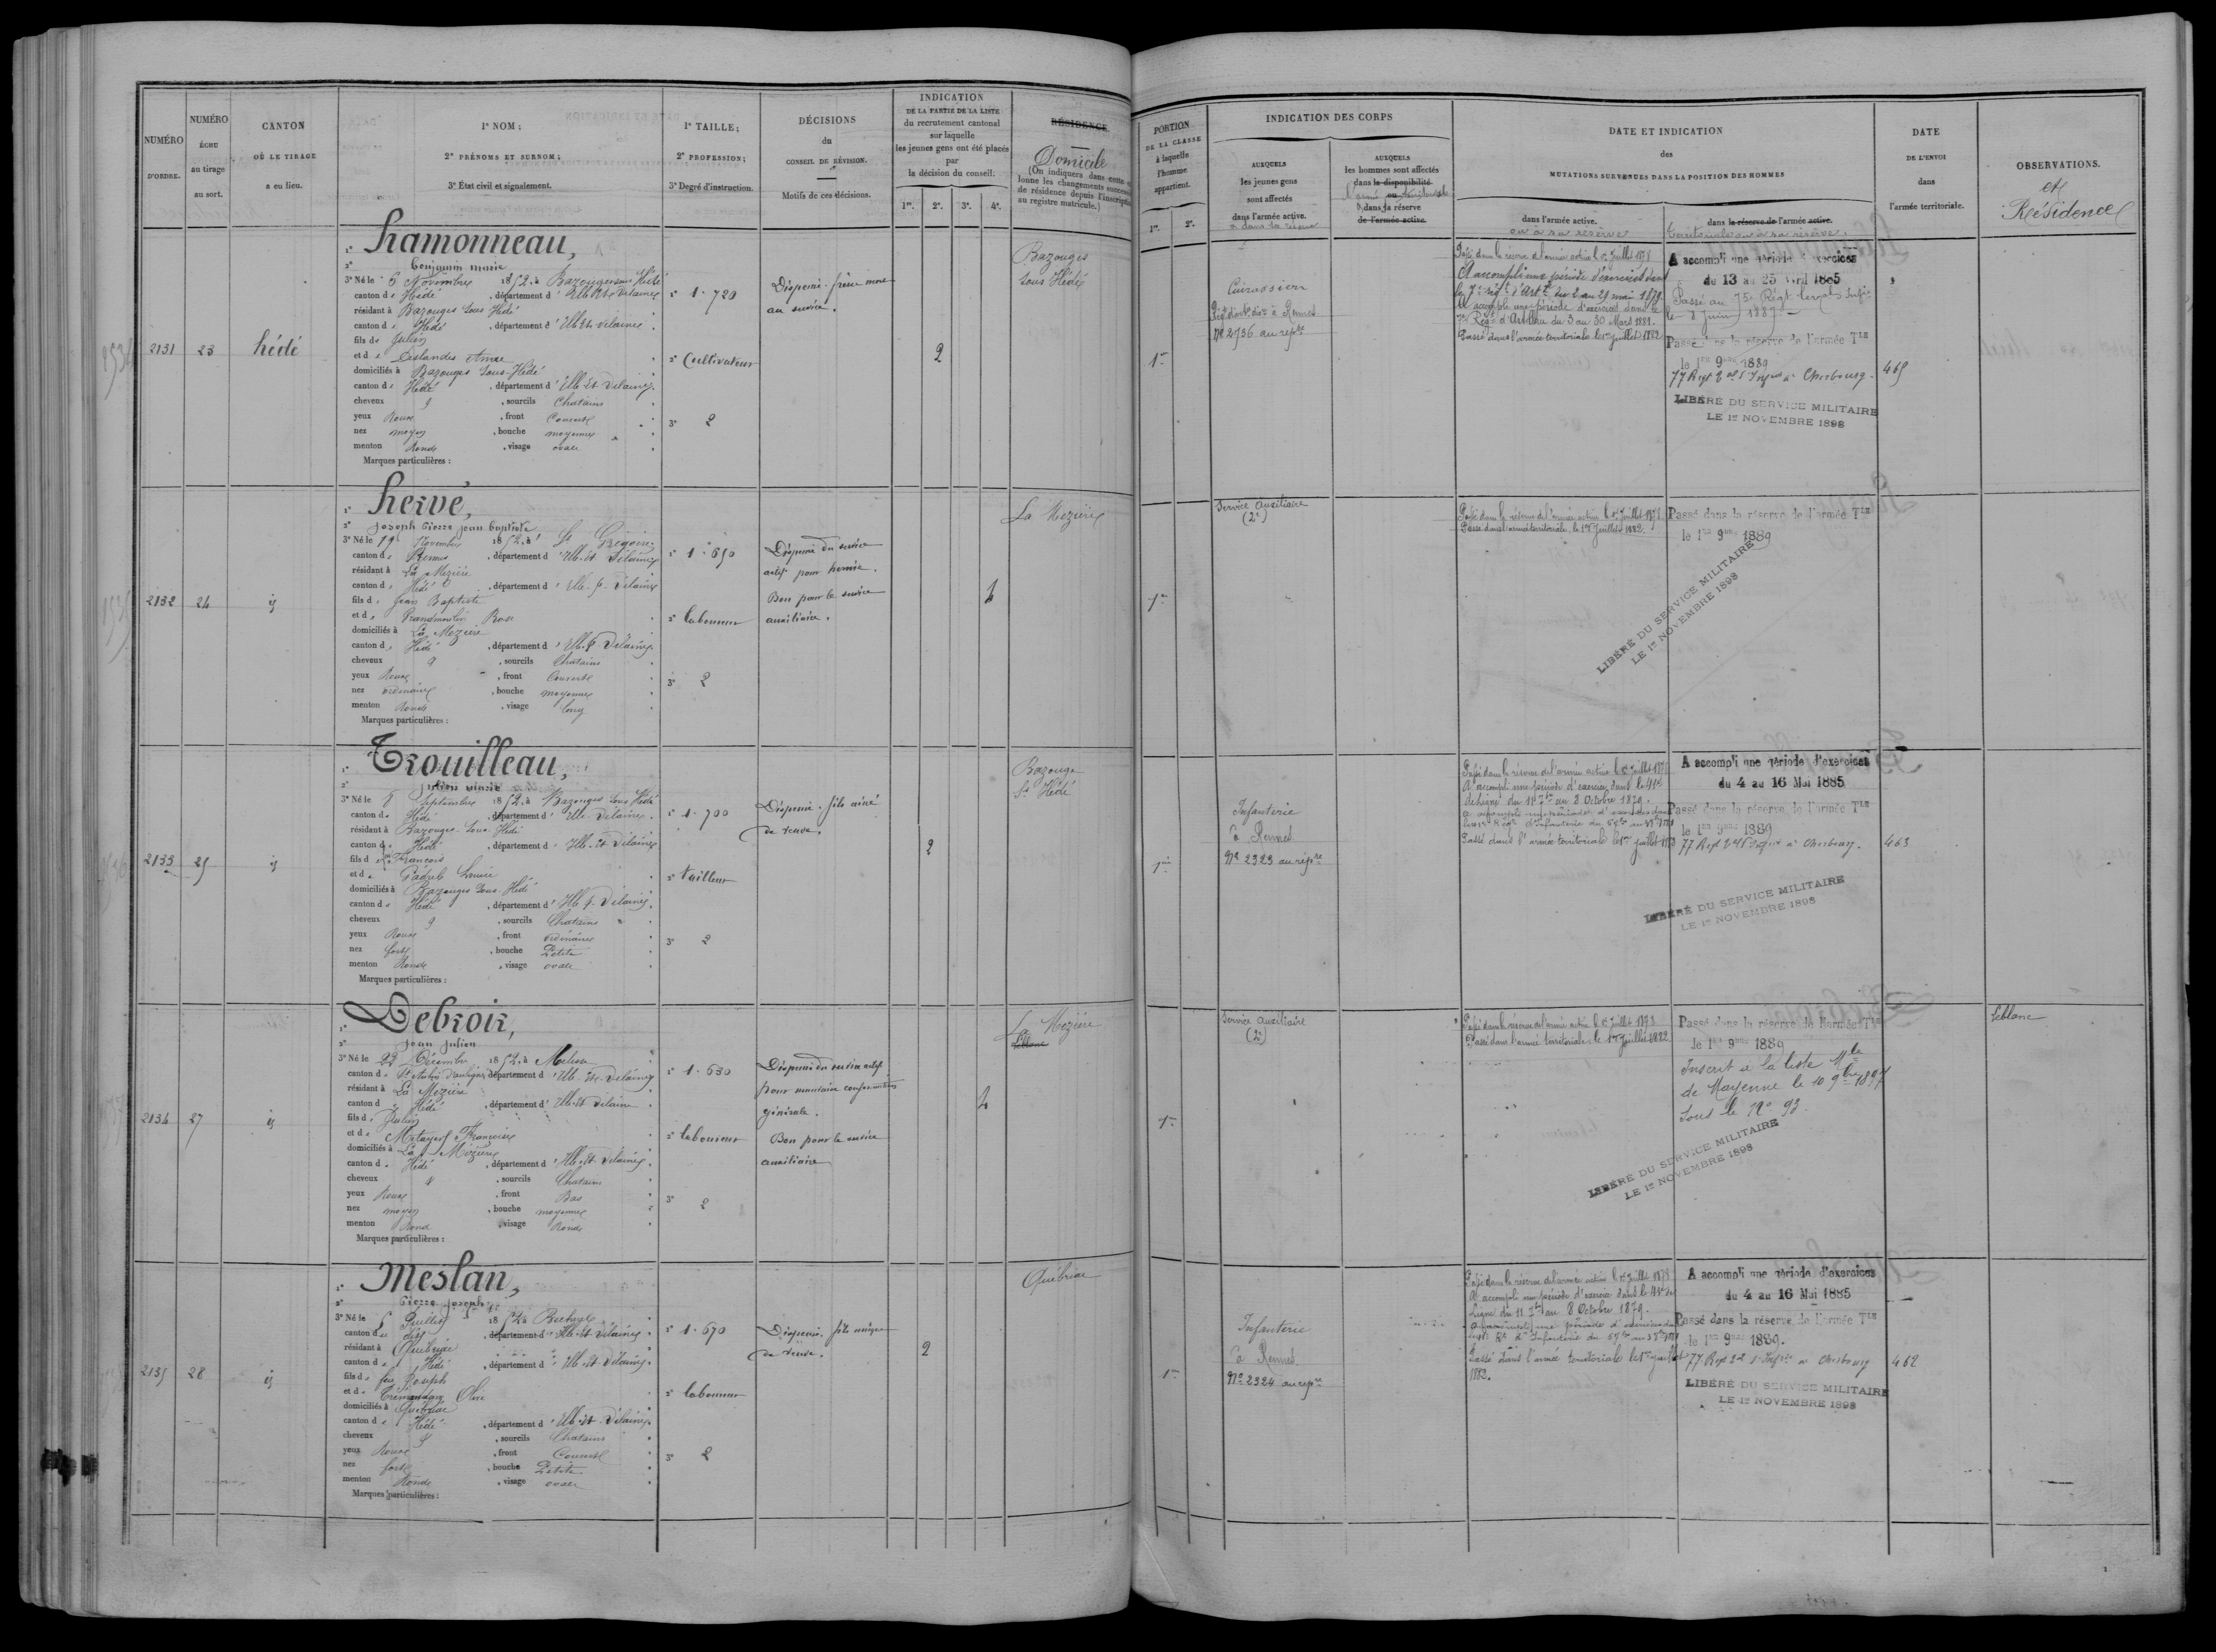 NUMÉRO
D'ORDRE.
NUMÉRO
ÉCHU
au tirage
au sort.
CANTON
OÙ LE TIRAGE
a eu lieu.
1° NOM;
2° PRÉNOMS ET SURNOM;
3° État civil et signalement.
1° TAILLE;
2° PROFESSION;
3° Degré d'instruction.
DÉCISIONS
du
CONSEIL DE RÉVISION.
Motifs de ces décisions.
INDICATION
DE LA PARTIE DE LA LISTE
du recrutement cantonal
sur laquelle
les jeunes gens ont été placés
par
la décision du conseil.
1re. 2e. 3e. 4e.
RÉSIDENCE.
Domicile
(On indiquera dans cette
lonne les changements
de résidence depuis l'inscription
au registre matricule.)
PORTION
DE LA CLASSE
à laquelle
l'homme
appartient.
1re. 2e.
INDICATION DES CORPS
AUXQUELS
les jeunes gens
sont affectés
dans l'armée active.
ou dans la réserve
AUXQUELS
les hommes sont affectés
dans la disponibilité
ou
dans la réserve
de l'armée active.
DATE ET INDICATION
des
MUTATIONS SURVENUES DANS LA POSITION DES HOMMES
dans l'armée active.
ou à sa réserve
dans la réserve de l'armée active.
territoriale ou à sa réserve.
DATE
DE L'ENVOI
dans
l'armée territoriale.
OBSERVATIONS.
et
Résidence
2131
23
hédé
1° hamonneau,
2° benjamin marie
3° Né le 5 Novembre 1852, à Bazouges sous Hédé
canton de Hédé, département d'Ille et Vilaine
résidant à Bazouges Sous Hédé
canton de Hédé, département d'Ille et Vilaine
fils de Julien
et de Deslandes Anne
domiciliés à Bazouges Sous Hédé
canton de Hédé, département d'Ille et Vilaine
cheveux &, sourcils Chatains
yeux Roux, front Couvert
nez moyen, bouche moyenne
menton Rond, visage ovale
Marques particulières :
1° 1.720
2° Cultivateur
3° 2
Dispensé. frère mort
au service.
2
Bazouges
Sous Hédé
1re
Cuirassier
à Rennes
No 2736 au repre
Passé dans la réserve de l'armée active le 1er Juillet 1878
A accompli une période d'exercices dans
le 7e régt d'Artie du 2 au 29 mai 1879.
A accompli une période d'exercices dans le
7e Régt d'Artillerie du 3 au 30 Mars 1881.
Passé dans l'armée territoriale le 1er juillet 1882
A accompli une période d'exercices
du 13 au 25 Avril 1885
Passé au 75e Régt territ Infie
le 8 Juin 1887
Passé dans la réserve de l'armée Tle
le 1er 9bre 1889
77 Regt à Cherbourg.
LIBÉRÉ DU SERVICE MILITAIRE
LE 1er NOVEMBRE 1898
465
2132
24
id
1° hervé,
2° Joseph Pierre jean baptiste
3° Né le 19 Novembre 1852, à St Grégoire
canton de Rennes, département d'Ille et Vilaine
résidant à La Mézière
canton de Hédé, département d'Ille et Vilaine
fils de Jean Baptiste
et de Grandmoulin Rose
domiciliés à La Mézière
canton de Hédé, département d'Ille et Vilaine
cheveux &, sourcils Chatains
yeux Roux, front Couvert
nez ordinaire, bouche moyenne
menton Rond, visage long
Marques particulières :
1° 1.650
2° laboureur
3° 2
Dispensé du service
actif pour hernie.
Bon pour le service
auxiliaire.
4
La Mézière
1re
Service Auxiliaire
(2e)
Passé dans la réserve de l'armée active le 1er Juillet 1878
Passé dans l'armée territoriale, le 1er Juillet 1882.
Passé dans la réserve de l'armée Tle
le 1er 9bre 1889
LIBÉRÉ DU SERVICE MILITAIRE
LE 1er NOVEMBRE 1898
2133
25
id
1° Trouilleau,
2° Julien marie
3° Né le 8 Septembre 1852, à Bazouges Sous Hédé
canton de Hédé, département d'Ille et Vilaine
résidant à Bazouges Sous Hédé
canton de Hédé, département d'Ille et Vilaine
fils de feu François
et de Louise
domiciliés à Bazouges Sous Hédé
canton de Hédé, département d'Ille et Vilaine
cheveux &, sourcils Chatains
yeux Roux, front ordinaire
nez fort, bouche Petite
menton Rond, visage ovale
Marques particulières :
1° 1.700
2° tailleur
3° 2
Dispensé. fils aîné
de veuve.
2
Bazouge
Ss Hédé
1re
Infanterie
à Rennes
No 2323 au repre
Passé dans la réserve de l'armée active le 1er Juillet 1878
A accompli une période d'exercices dans le 41e
de ligne du 11 7bre au 8 Octobre 1879.
Passé dans l'armée territoriale le 1er juillet
A accompli une période d'exercices
du 4 au 16 Mai 1885
Passé dans la réserve de l'armée Tle
le 1er 9bre 1889
77 Regt à Cherbourg.
LIBÉRÉ DU SERVICE MILITAIRE
LE 1er NOVEMBRE 1898
463
2134
27
id
1° Debroir,
2° Jean Julien
3° Né le 23 Décembre 1852, à Melesse
canton de St Aubin d'Aubigné, département d'Ille et Vilaine
résidant à La Mézière
canton de Hédé, département d'Ille et Vilaine
fils de Julien
et de Métayer Françoise
domiciliés à La Mézière
canton de Hédé, département d'Ille et Vilaine
cheveux &, sourcils Chatains
yeux Roux, front Bas
nez moyen, bouche moyenne
menton Rond, visage Rond
Marques particulières :
1° 1.630
2° laboureur
3° 2
Dispensé du service actif
pour mauvaise conformation
générale.
Bon pour le service
auxiliaire
4
La Mézière
1re
Service Auxiliaire
(2e)
Passé dans la réserve de l'armée active le 1er Juillet 1878
Passé dans l'armée territoriale, le 1er Juillet 1882
Passé dans la réserve de l'armée Tle
le 1er 9bre 1889
Inscrit à la liste Mle
de Mayenne le 10 9bre 1897
Sous le No 93.
LIBÉRÉ DU SERVICE MILITAIRE
LE 1er NOVEMBRE 1898
Leblanc
2135
28
id
1° Meslan,
2° Pierre Joseph
3° Né le 5 Juillet 1852, à Becherel
canton de dit, département d'Ille et Vilaine
résidant à Québriac
canton de Hédé, département d'Ille et Vilaine
fils de feu Joseph
et de
domiciliés à Québriac
canton de Hédé, département d'Ille et Vilaine
cheveux &, sourcils Chatains
yeux Roux, front Couvert
nez fort, bouche Petite
menton Rond, visage ovale
Marques particulières :
1° 1.670
2° laboureur
3° 2
Dispensé. fils unique
de veuve.
2
Québriac
1re
Infanterie
à Rennes
No 2324 au repre
Passé dans la réserve de l'armée active le 1er Juillet 1878
A accompli une période d'exercices dans le 41e de
Ligne du 11 7bre au 8 Octobre 1879.
Passé dans l'armée territoriale le 1er juillet
1882.
A accompli une période d'exercices
du 4 au 16 Mai 1885
Passé dans la réserve de l'armée Tle
le 1er 9bre 1889.
77 Regt à Cherbourg
LIBÉRÉ DU SERVICE MILITAIRE
LE 1er NOVEMBRE 1898
462